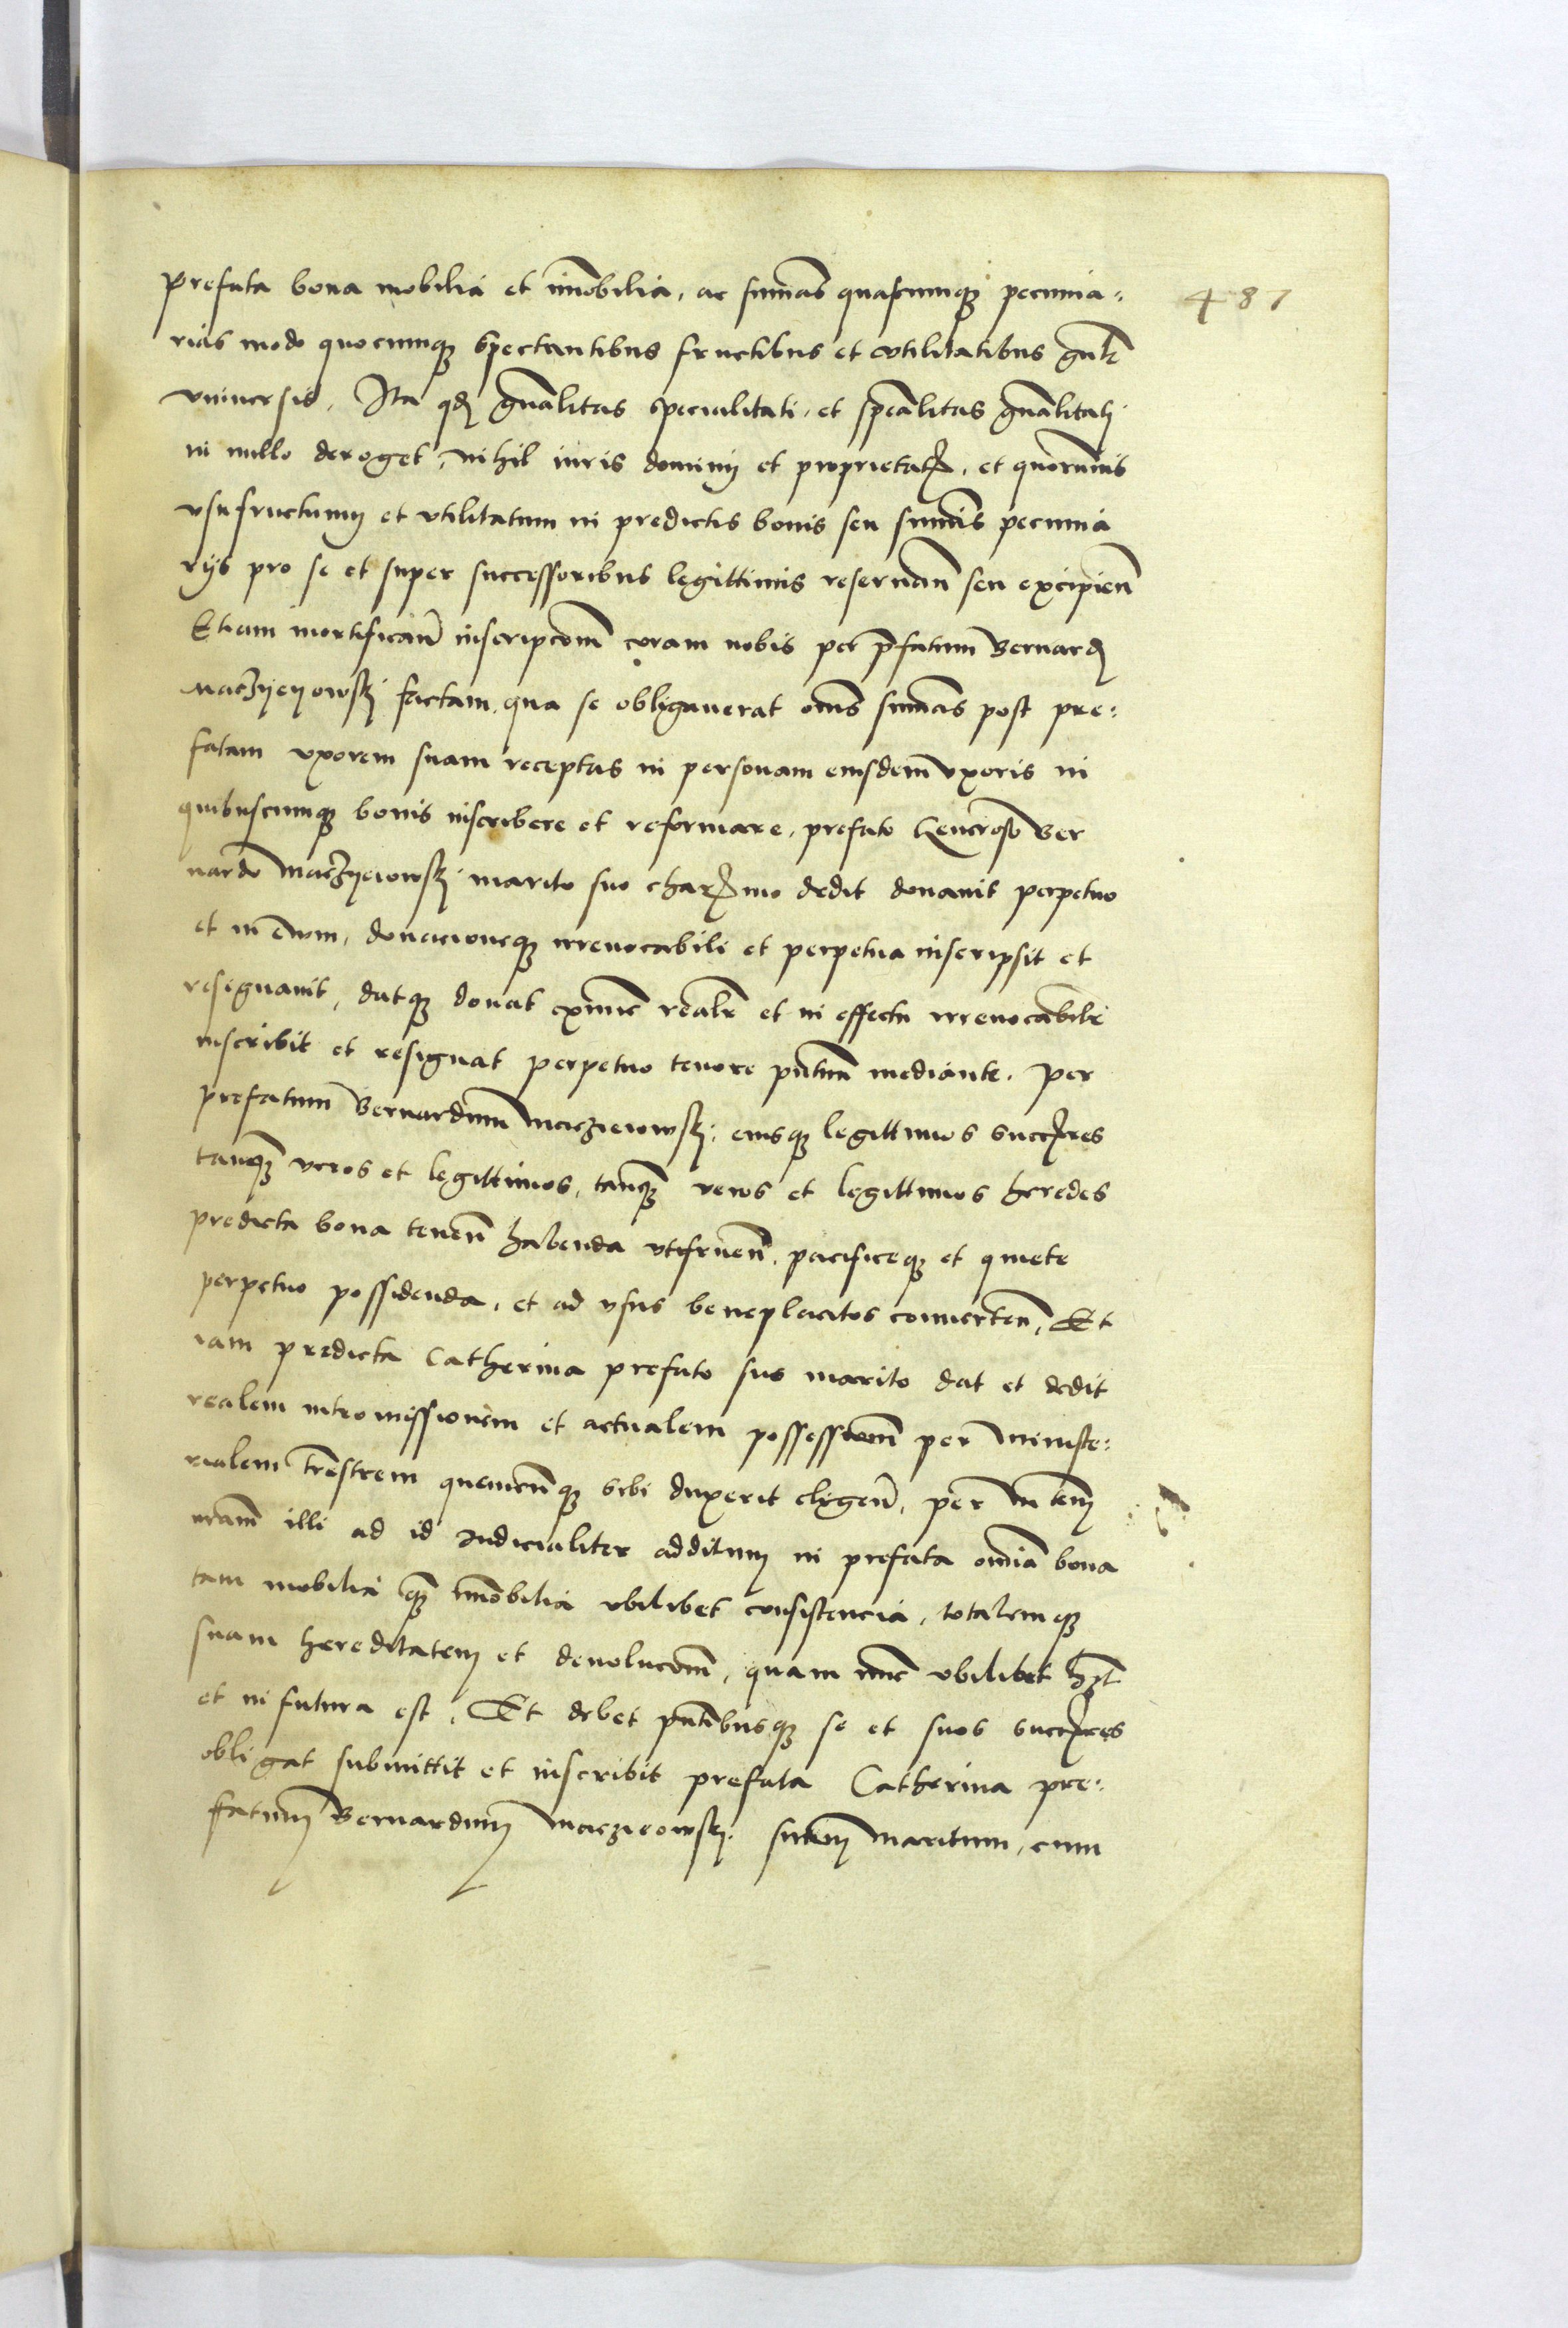 prefata bona mobilia et im̄obilia, ac sum̄as quascumq₃ pecunia⸗
487
rias modo quocumq₃ spectantibus fructibus et vtilitatibus gn̄lr
vniuersis, Ita qđ gn̄alitas specialitati, et specālitas gn̄alitati
in nullo deroget, nihil iuris dominij et proprietatis, et quorumuis
vsufructuum et vtilitatum in predictis bonis seu sum̄is pecunia
rijs pro se et super successoribus legittimis reseruan̄ seu excipien̄
Etiam mortifican̄ inscripcōm coram nobis per p̄fatum Bernard
Macżyeyowskj factam, qua se obligauerat om̄s sum̄as post pre⸗
fatam vxorem suam receptas in personam eiusdem vxoris in
quibuscumq₃ bonis inscribere et reformare, prefato Generoso Ber
nardo Macżyeiowskj marito suo charīmo dedit donauit perpetuo
et in ewm, donacioneq₃ irreuocabili et perpetua inscripsit et
resignauit, datq₃ donat exnūc realr et in effectu irreuocabilr
inscribit et resignat perpetuo tenore pn̄tium mediante. Per
prefatum Bernardum Macżieiowskj, eiusq₃ legittimos succ̄res
tanq₃ veros et legittimos, tanq₃ veros et legittimos heredes
predicta bona tenen̄ habenda vtifruen̄, pacificeq₃ et quiete
perpetuo possidenda, et ad vsus beneplacitos conuerten̄, Et
iam predicta Catherina prefato suo marito dat et dedit
realem intromissionem et actualem possessionem per ministe⸗
rialem tr̄estrem quemcūnq₃ sibi duxerit eligen̄, per
nram illi ad id Iudicialiter additum in prefata omīa bona
tam mobilia q₃ im̄obilia vbilibet consistencia, totalemq₃
suam hereditatem et deuolucōm, quam nūc vbilibet hꝫt
et in futura est, Et debet pn̄tibusq₃ se et suos succ̄res
obligat submittit et inscribit prefata Catherina pre⸗
fatum Bernardum Maczieiowskj suum maritum, cum